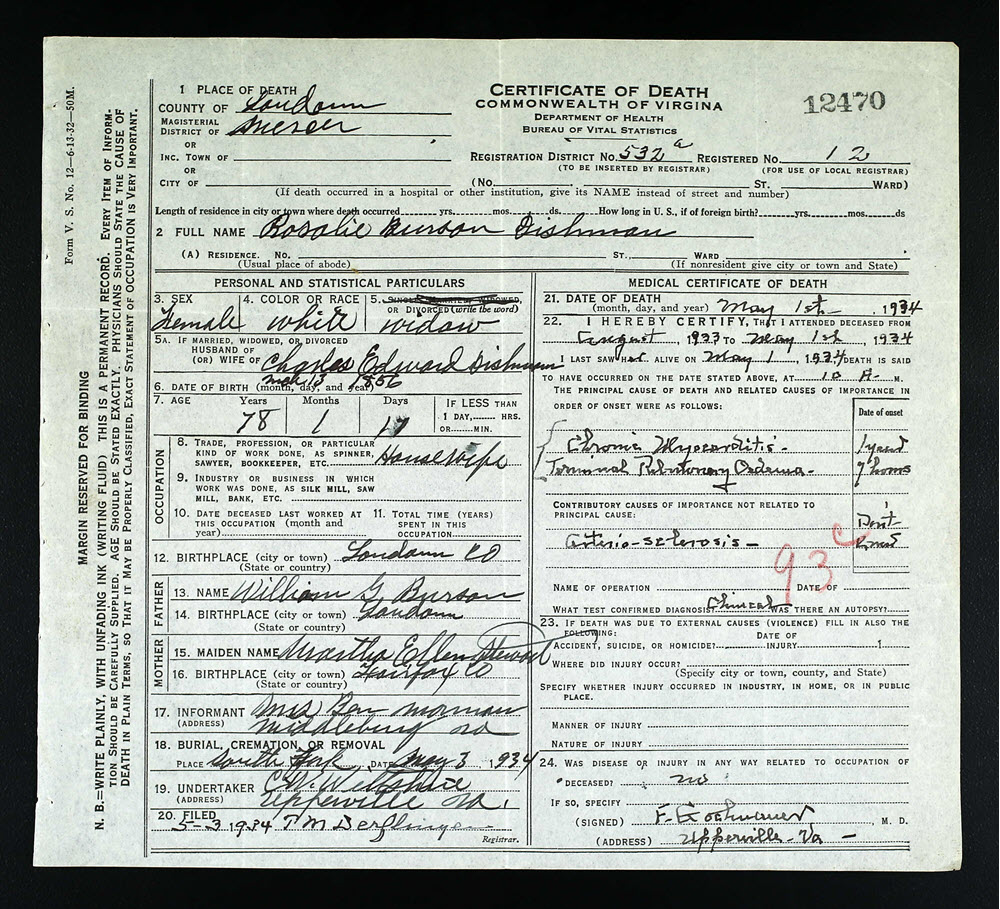 Form V. S. No. 12—6-13-32—50M.
MARGIN RESERVED FOR BINDING
N. B.=WRITE PLAINLY, WITH UNFADING INK (WRITING FLUID) THIS IS A PERMANENT RECORD. EVERY ITEM OF INFORM-
TION SHOULD BE CAREFULLY SUPPLIED. AGE SHOULD BE STATED EXACTLY. PHYSICIANS SHOULD STATE THE CAUSE OF
DEATH IN PLAIN TERMS, SO THAT IT MAY BE PROPERLY CLASSIFIED, EXACT STATEMENT OF OCCUPATION IS VERY IMPORTANT.
1 PLACE OF DEATH
COUNTY OF Loudoun
MAGISTERIAL
DISTRICT OF Mercer
OR
INC. TOWN OF
OR
CITY OF
CERTIFICATE OF DEATH
COMMONWEALTH OF VIRGINA
DEPARTMENT OF HEALTH
BUREAU OF VITAL STATISTICS
12470
REGISTRATION DISTRICT NO. 532 a REGISTERED NO. 12
(TO BE INSERTED BY REGISTRAR) (FOR USE OF LOCAL REGISTRAR)
(No. ST. WARD)
(If death occurred in a hospital or other institution, give its NAME instead of street and number)
Length of residence in city or town where death occurred yrs. mos. ds. How long in U. S., if of foreign birth? yrs. mos. ds
2 FULL NAME Rosalie Burson Dishman
(A) RESIDENCE. NO. ST., WARD
(Usual place of abode) (If nonresident give city or town and State)
PERSONAL AND STATISTICAL PARTICULARS
3. SEX 4. COLOR OR RACE 5. SINGLE, MARRIED, WIDOWED,
OR DIVORCED (write the word)
Female white widow
5A. IF MARRIED, WIDOWED, OR DIVORCED
HUSBAND OF
(OR) WIFE OF Charles Edward Dishman
6. DATE OF BIRTH (month, day, and year) 1856
7. AGE Years Months Days IF LESS THAN
1 DAY, HRS.
OR MIN.
78 1
OCCUPATION
8. TRADE, PROFESSION, OR PARTICULAR
KIND OF WORK DONE, AS SPINNER,
SAWYER, BOOKKEEPER, ETC. Housewife
9. INDUSTRY OR BUSINESS IN WHICH
WORK WAS DONE, AS SILK MILL, SAW
MILL, BANK, ETC.
10. DATE DECEASED LAST WORKED AT 11. TOTAL TIME (YEARS)
THIS OCCUPATION (month and SPENT IN THIS
year) OCCUPATION
12. BIRTHPLACE (city or town) Loudoun Co
(State or country)
FATHER
13. NAME William G Burson
14. BIRTHPLACE (city or town) Loudoun
(State or country)
MOTHER
15. MAIDEN NAME Martha Ellen Steward
16. BIRTHPLACE (city or town) Fairfax Co
(State or country)
17. INFORMANT Mrs Ben Morman
(ADDRESS) Middleburg Va
18. BURIAL, CREMATION, OR REMOVAL
PLACE South Fork DATE May 3 1934
19. UNDERTAKER
(ADDRESS) Upperville Va.
20. FILED
5-3 1934 T M Derflinger
Registrar.
MEDICAL CERTIFICATE OF DEATH
21. DATE OF DEATH
(month, day, and year) May 1st 1934
22. I HEREBY CERTIFY, THAT I ATTENDED DECEASED FROM
August, 1933 TO May 1st, 1934
I LAST SAW H ALIVE ON May 1, 1934 DEATH IS SAID
TO HAVE OCCURRED ON THE DATE STATED ABOVE, AT 10 A. M.
THE PRINCIPAL CAUSE OF DEATH AND RELATED CAUSES OF IMPORTANCE IN
ORDER OF ONSET WERE AS FOLLOWS:
Date of onset
Chronic Myocarditis 1 year
Terminal Pulmonary Oedema 7 hours
CONTRIBUTORY CAUSES OF IMPORTANCE NOT RELATED TO
PRINCIPAL CAUSE:
Don't
Arterio-sclerosis
93c
NAME OF OPERATION DATE OF
WHAT TEST CONFIRMED DIAGNOSIS? Clinical WAS THERE AN AUTOPSY?
23. IF DEATH WAS DUE TO EXTERNAL CAUSES (VIOLENCE) FILL IN ALSO THE
FOLLOWING:
DATE OF
ACCIDENT, SUICIDE, OR HOMICIDE? INJURY 1
WHERE DID INJURY OCCUR?
(Specify city or town, county, and State)
SPECIFY WHETHER INJURY OCCURRED IN INDUSTRY, IN HOME, OR IN PUBLIC
PLACE.
MANNER OF INJURY
NATURE OF INJURY
24. WAS DISEASE OR INJURY IN ANY WAY RELATED TO OCCUPATION OF
DECEASED? no
IF SO, SPECIFY
(SIGNED) M. D.
(ADDRESS) Upperville - Va -